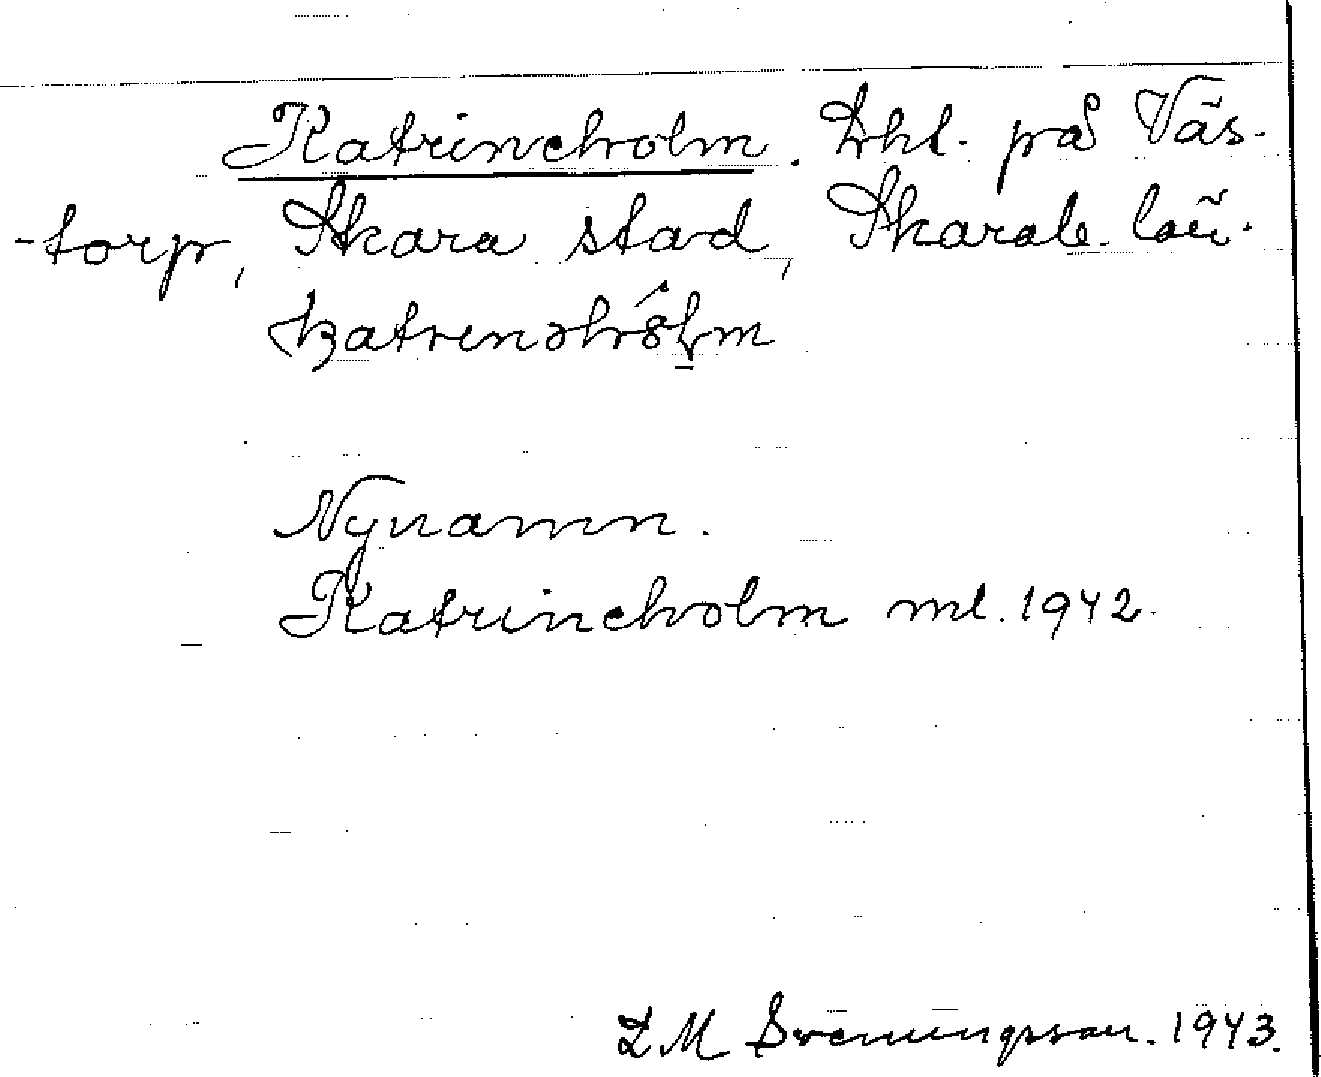 Katrineholm. Lht. på Väs-
-torp, Skara stad, Skarab. län.
Nynamn.
Katrineholm ml. 1942.
L M Svenungsson. 1943.